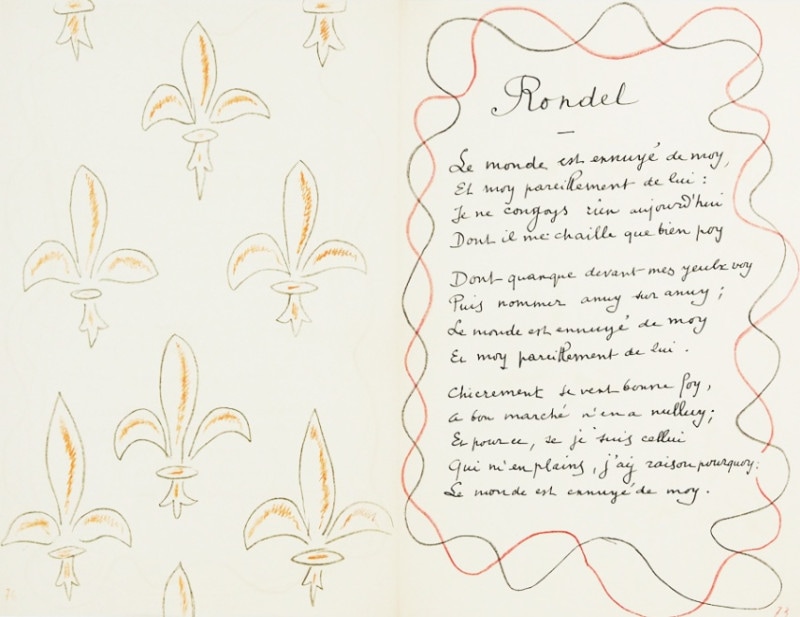 Rondel
Le monde est ennuyé de moy,
Et moy pareillement de lui :
Je ne congoys rien aujourd'hui
Dont il me chaille que bien poy
Dont quanque devant mes yeulx voy
Puis nommer anuy sur anuy ;
Le monde est ennuyé de moy
Et moy pareillement de lui .
Chierement se vent bonne foy,
a bon marché n'en a nulluy ;
Et pour ce, se je suis cellui
Qui m'en plains, j'ay raison pourquoy :
Le monde est ennuyé de moy .